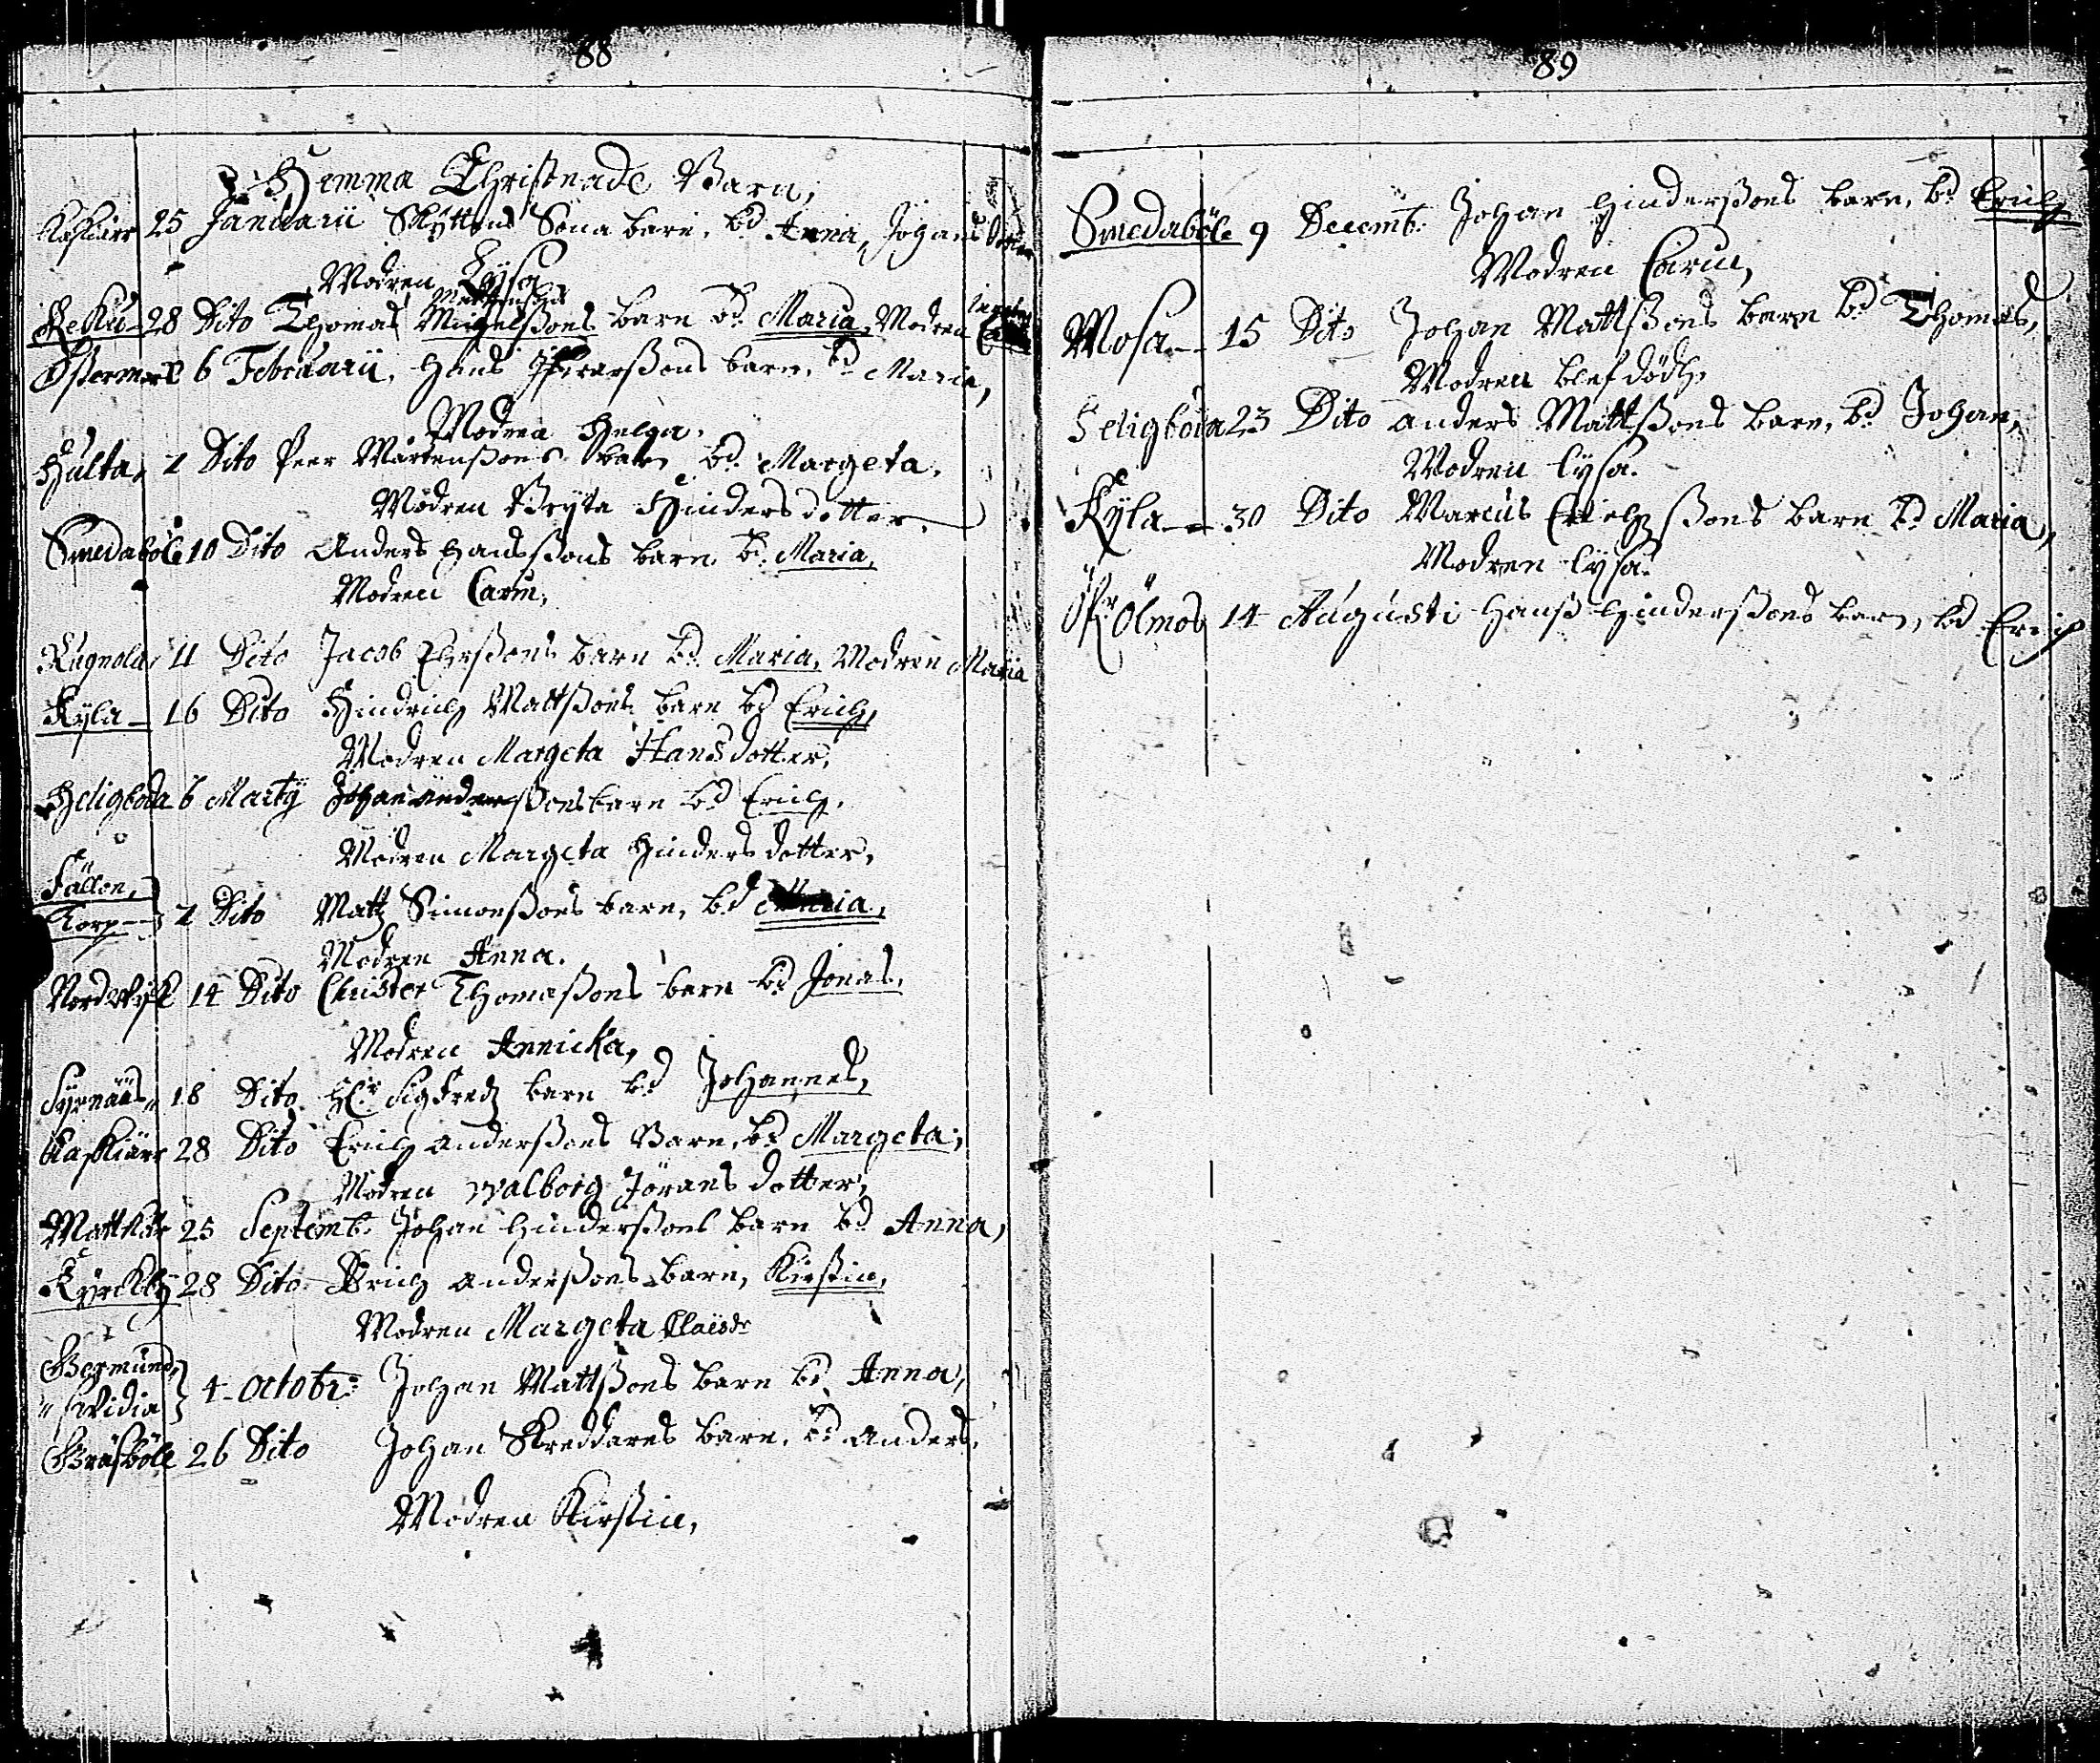 88
Hemma Christnade Barn,
25 Januarii Skyttens Sona barn, bd Anna, Johans
Modren Lysa
Mårtensßons
ReKu- 28 Dito Thomas Michelßons barn bd. Maria, Modren
Östermark 6 Februarii, Hans barn, bd Maria,
Modren Helga.
Hulta, 7 Dito Peer Mårtenßons barn bd. Margeta,
Modren Bryta Hindersdotter.
Smedaböle 10 Dito Anders Hansßons barn bd. Maria,
Modren Carin,
Rugnola, 11 Dito Jacob barn bd. Maria, Modren Maria
Kyla - 16 Dito Hindrich Mattßons barn bd Erich,
Modren Margeta Hansdotter,
Heligboda 6 Marty Johan Anderßons barn bd Erich.
Modren Margeta Hindersdotter,
Fallon,
Torp-- 7 Dito Matz Simonßons barn, bd Maria,
Modren Anna.
Nordwyk 14 Dito Christer Thomaßons barn bd Jonas,
Modren Annicka,
Syrnääs 18 Dito Hr. Sigfredz barn bd Johannes,
Kaskiärr 28 Dito Erich Anderßons Barn, bd Margeta,
Modren Walborg Jörans dotter,
Mattkärr 25 Septemb. Johan Hinderßons barn bd Anna,
Kyrckby 28 Dito Erich Anderßons barn, Kirstin,
Modren Margeta Claisdr
Germund,
" Swidia 4- Octobr: Johan Mattßons barn bd Anna,
Gräsböle 26 Dito Johan Skreddares barn, bd Anders,
Modren Kirstin,
89
Smedaböle 9 Decemb. Johan Hinderßons barn, bd Erich
Modren Carin,
Mosa-- 15 Dito Johan Mattßons barn bd Thomas,
Modren blef dödh,
Heligboda 23 Dito Anders Mattßons barn, bd Johan,
Modren Lysa.
Kyla-- 30 Dito Marcus Erichßons barn bd Maria,
Modren Lysa.
Öfr Ölmos 14 Augusti Hanß Hinderßons barn, bd Erich